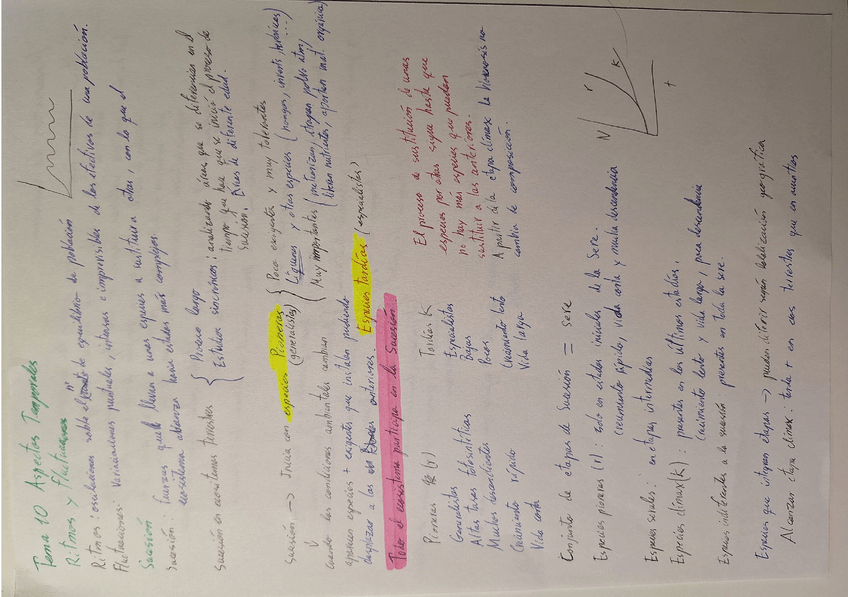 Tema 10 Aspectos Temporales
Ritmos y Fluctuaciones
Ritmos: oscilaciones sobre el nº de equilibrio de población
Fluctuaciones: Variaciones puntuales, intensas e imprevisibles de los efectivos de una población.
Sucesión
Sucesión: fuerzas que llevan a unas especies a sustituir a otras, con lo que el
ecosistema avanza hacia estados más complejos.
Sucesión en ecosistemas terrestres
Proceso largo
Estudios sincrónicos: analizando áreas que se diferencian en el
tiempo que hace que se inició el proceso de
sucesión. Áreas de diferente edad.
Sucesión → Inicia con especies Pioneras
(generalistas)
Poco exigentes y muy tolerantes
Líquenes y otras especies (hongos,
Muy importantes (meteorizan, atrapan polvo atm,
liberan nutrientes, aportan mat. orgánica)
↓
cuando las condiciones ambientales cambian
aparecen especies + exigentes que instalan pudiendo
desplazar a las anteriores. Especies tardías (especialistas)
Todo el ecosistema participa en la Sucesión.
Pioneras (r)
Generalistas
Altas tasas fotosintéticas
Muchos descendientes
Crecimiento rápido
Vida corta
Tardías K
Especialistas
Bajas
Pocos
Crecimiento lento
Vida larga
El proceso de sustitución de unas
especies por otras sigue hasta que
no hay más especies que puedan
sustituir a las anteriores.
A partir de la etapa clímax la biocenosis no
cambia de composición.
Conjunto de etapas de Sucesión = sere
Especies pioneras (r): solo en estados iniciales de la Sere.
Crecimiento rápido, vida corta y mucha descendencia
Especies seriales: en etapas intermedias
Especies clímax (K): presentes en los últimos estadios.
Crecimiento lento y vida larga, poca descendencia
Especies indiferentes a la sucesión presentes en toda la sere.
N
r
K
t
Especies que integran etapas → pueden diferir según localización geográfica
Alcanzar etapa clímax: tarda + en ecos terrestres que en acuáticos